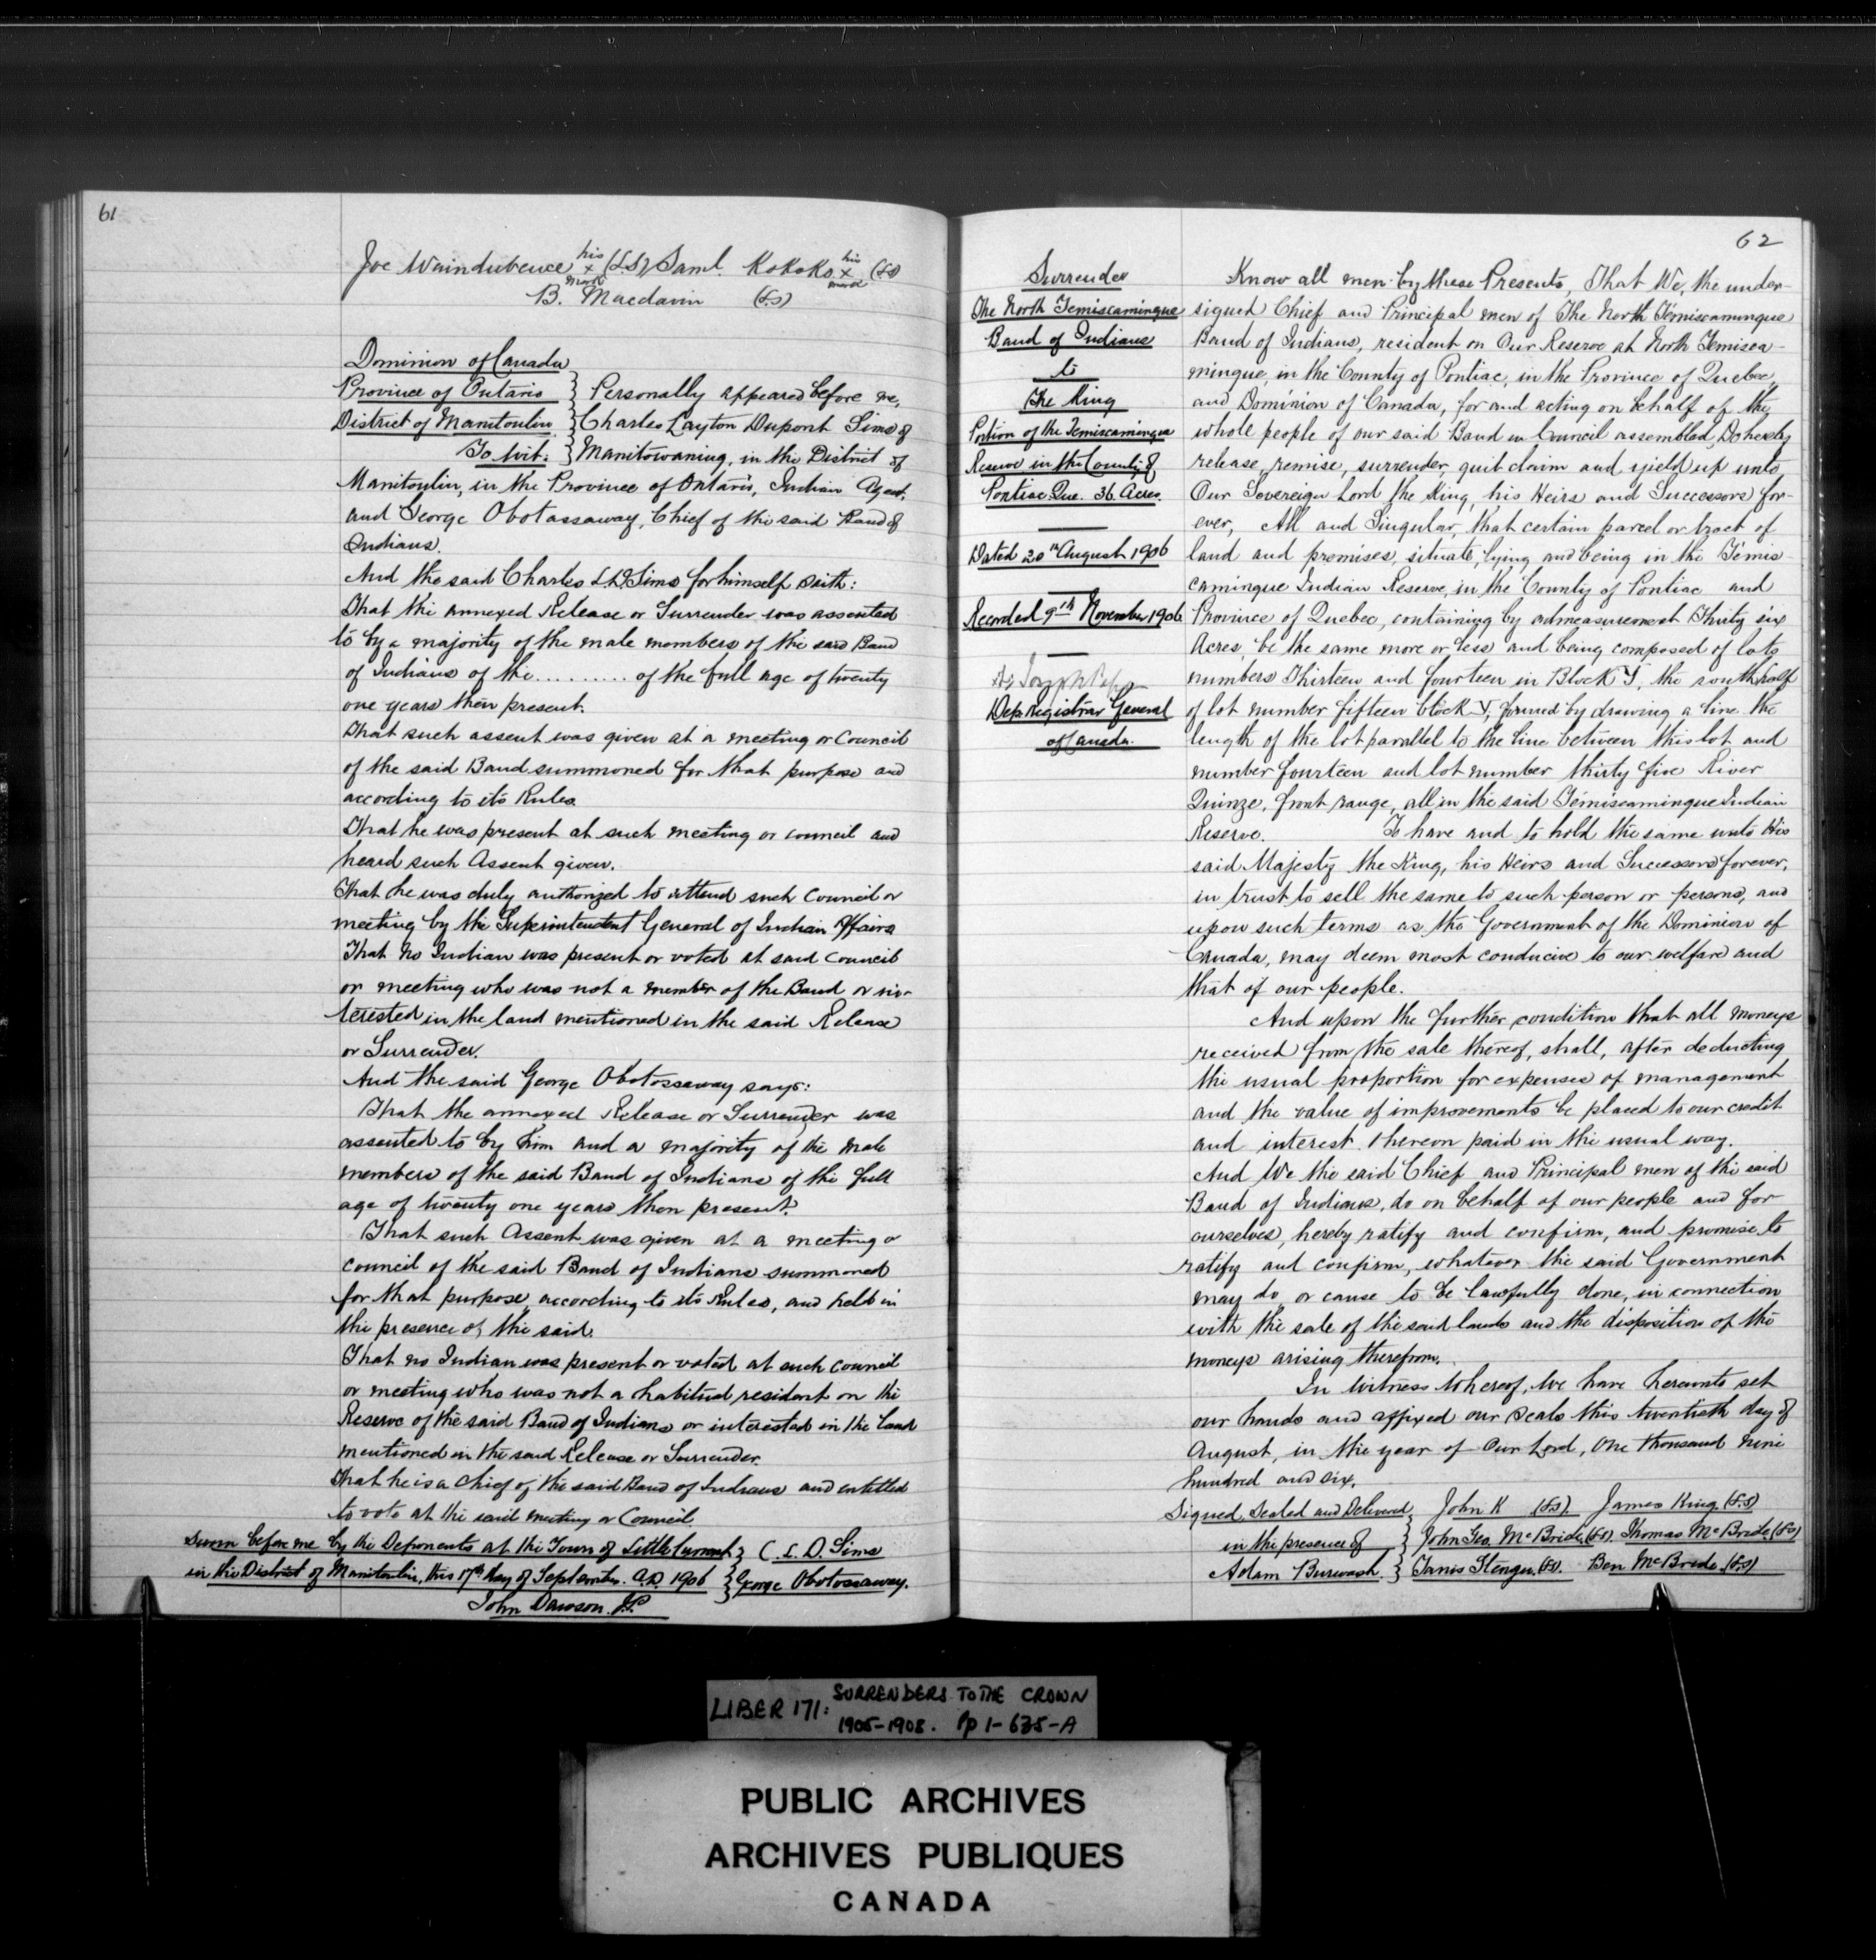 61
Joe Waindubence his x mark (L.S) Saml. Kokoko his x mark (L.S)
B. Macdavin (L.S)
Dominion of Canada
Province of Ontario } Personally appeared before me,
District of Manitoulin } Charles Layton Dupont Sims of
To Wit: } Manitowaning, in the District of
Manitoulin, in the Province of Ontario, Indian Agent,
and George Obotassaway, Chief of the said Band of
Indians.
And the said Charles L. D. Sims for himself saith:
That the annexed Release or Surrender was assented
to by a majority of the male members of the said Band
of Indians of the .......... of the full age of twenty
one years then present.
That such assent was given at a meeting or Council
of the said Band summoned for that purpose and
according to its Rules
That he was present at such meeting or council and
heard such Assent given.
That he was duly authorized to attend such Council or
meeting by the Superintendent General of Indian Affairs
That No Indian was present or voted at said Council
or meeting who was not a member of the Band or in-
terested in the land mentioned in the said Release
or Surrender.
And the said George Obotossaway says:
That the annexed Release or Surrender was
assented to by him and a majority of the male
members of the said Band of Indians of the full
age of twenty one years then present.
That such Assent was given at a meeting or
council of the said Band of Indians summoned
for that purpose, according to its Rules, and held in
the presence of the said.
That no Indian was present or voted at such council
or meeting who was not a habitual resident on the
Reserve of the said Band of Indians or interested in the land
mentioned in the said Release or Surrender.
That he is a Chief of the said Band of Indians and entitled
to vote at the said meeting or Council.
Sworn before me by the Deponents at the Town of Little Current } C. L. D. Sims
in the District of Manitoulin, this 17th day of September. A.D. 1906 } George Obotossaway.
John Dawson. J.P.
62
Surrender
The North Temiscamingue
Band of Indians
to
The King
Portion of the Temiscamingue
Reserve in the County of
Pontiac Que. 36 Acres.
Dated 20th August 1906
Recorded 9th November 1906
Dep Registrar General
of Canada.
Know all men by these Presents, That We, the under-
signed Chief and Principal men of The North Temiscamingue
Band of Indians, resident on Our Reserve at North Temisca-
mingue, in the County of Pontiac, in the Province of Quebec,
and Dominion of Canada, for and acting on behalf of the
whole people of our said Band in Council assembled, Do hereby
release, remise, surrender, quit claim and yield up unto
Our Sovereign Lord the King, his Heirs and Successors for-
ever, All and Singular, that certain parcel or tract of
land and premises, situate, lying and being in the Témis-
camingue Indian Reserve, in the County of Pontiac and
Province of Quebec, containing by admeasurement Thirty six
Acres, be the same more or less and being composed of lots
numbers Thirteen and fourteen in Block Y, the south half
of lot number fifteen block Y, formed by drawing a line the
length of the lot parallel to the line between this lot and
number fourteen and lot number thirty five River
Quinze, front range, all in the said Témiscamingue Indian
Reserve. To have and to hold the same unto His
said Majesty the King, his Heirs and Successors forever,
in trust to sell the same to such person or persons, and
upon such terms as the Government of the Dominion of
Canada, may deem most conducive to our welfare and
that of our people.
And upon the further condition that all moneys
received from the sale thereof, shall, after deducting
the usual proportion for expenses of management
and the value of improvements be placed to our credit
and interest thereon paid in the usual way.
And We the said Chief and Principal men of the said
Band of Indians, do on behalf of our people and for
ourselves, hereby ratify and confirm, and promise to
ratify and confirm, whatever the said Government
may do, or cause to be lawfully done, in connection
with the sale of the said lands and the disposition of the
moneys arising therefrom.
In Witness Whereof, we have hereunto set
our hands and affixed our Seals this twentieth day of
August, in the year of Our Lord, One thousand nine
hundred and six.
Signed, Sealed and Delivered John K (L.S). James King (L.S)
in the presence of } John Geo. McBride (L.S). Thomas McBride (L.S)
Adam Burwash. } Tanis Stenger (L.S). Ben McBride (L.S)
LIBER 171: SURRENDERS TO THE CROWN
1905-1908. Pp 1-635-A
PUBLIC ARCHIVES
ARCHIVES PUBLIQUES
CANADA